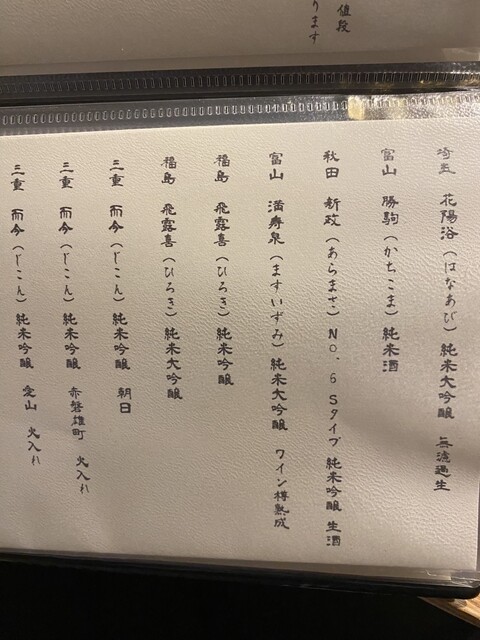 値段
ります
埼玉 花陽浴(はなあび) 純米大吟醸 無濾過生
富山 勝駒(かちこま) 純米酒
秋田 新政(あらまさ) No.6 Sタイプ 純米吟醸 生酒
富山 満寿泉(ますいずみ) 純米大吟醸 ワイン樽熟成
福島 飛露喜(ひろき) 純米吟醸
福島 飛露喜(ひろき) 純米大吟醸
三重 而今(じこん) 純米吟醸 朝日
三重 而今(じこん) 純米吟醸 赤磐雄町 火入れ
三重 而今(じこん) 純米吟醸 愛山 火入れ